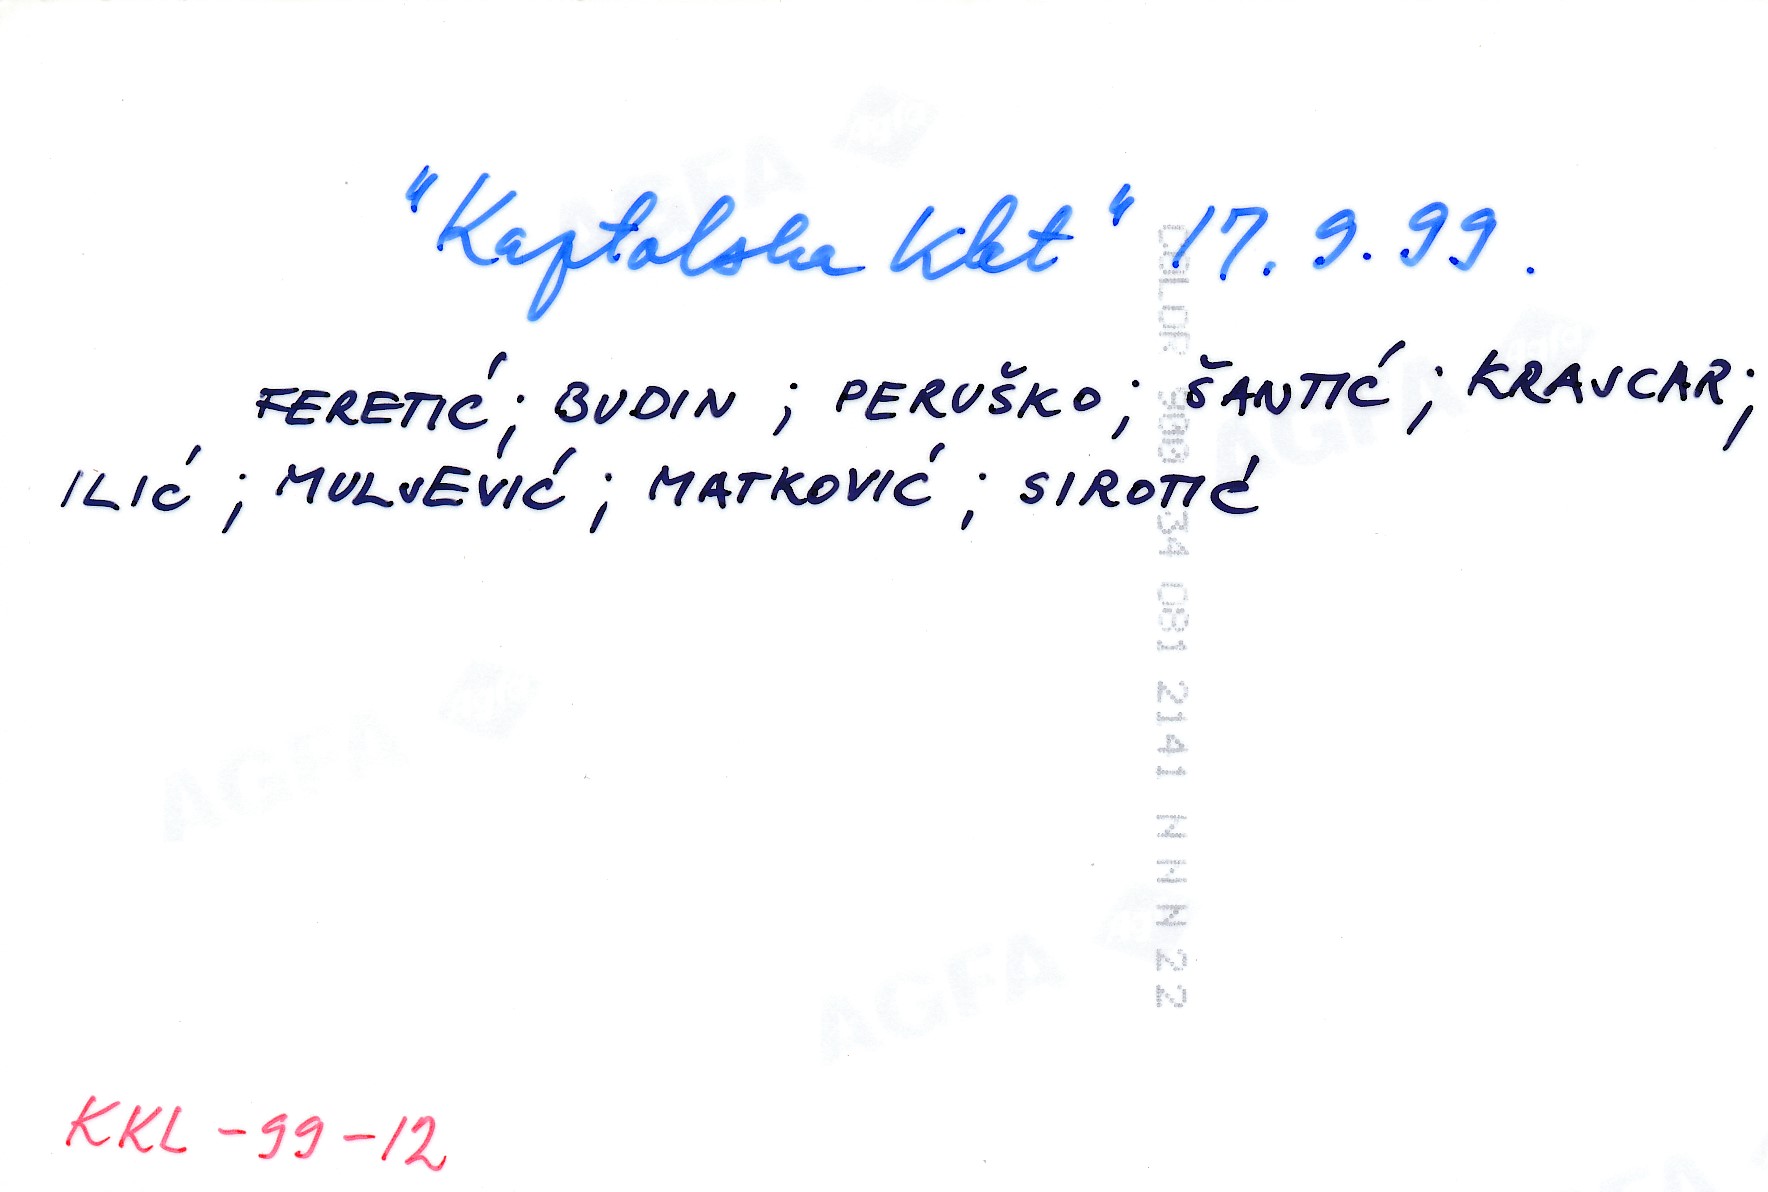 "Kaptolska Klet" 17. 9. 99.
FERETIĆ; BUDIN; PERUŠKO; ŠANTIĆ; KRAJCAR;
ILIĆ; MULJEVIĆ; MATKOVIĆ; SIROTIĆ
KKL-99-12
AGFA
AGFA
AGFA
AGFA
34 081 2141 N N N 22